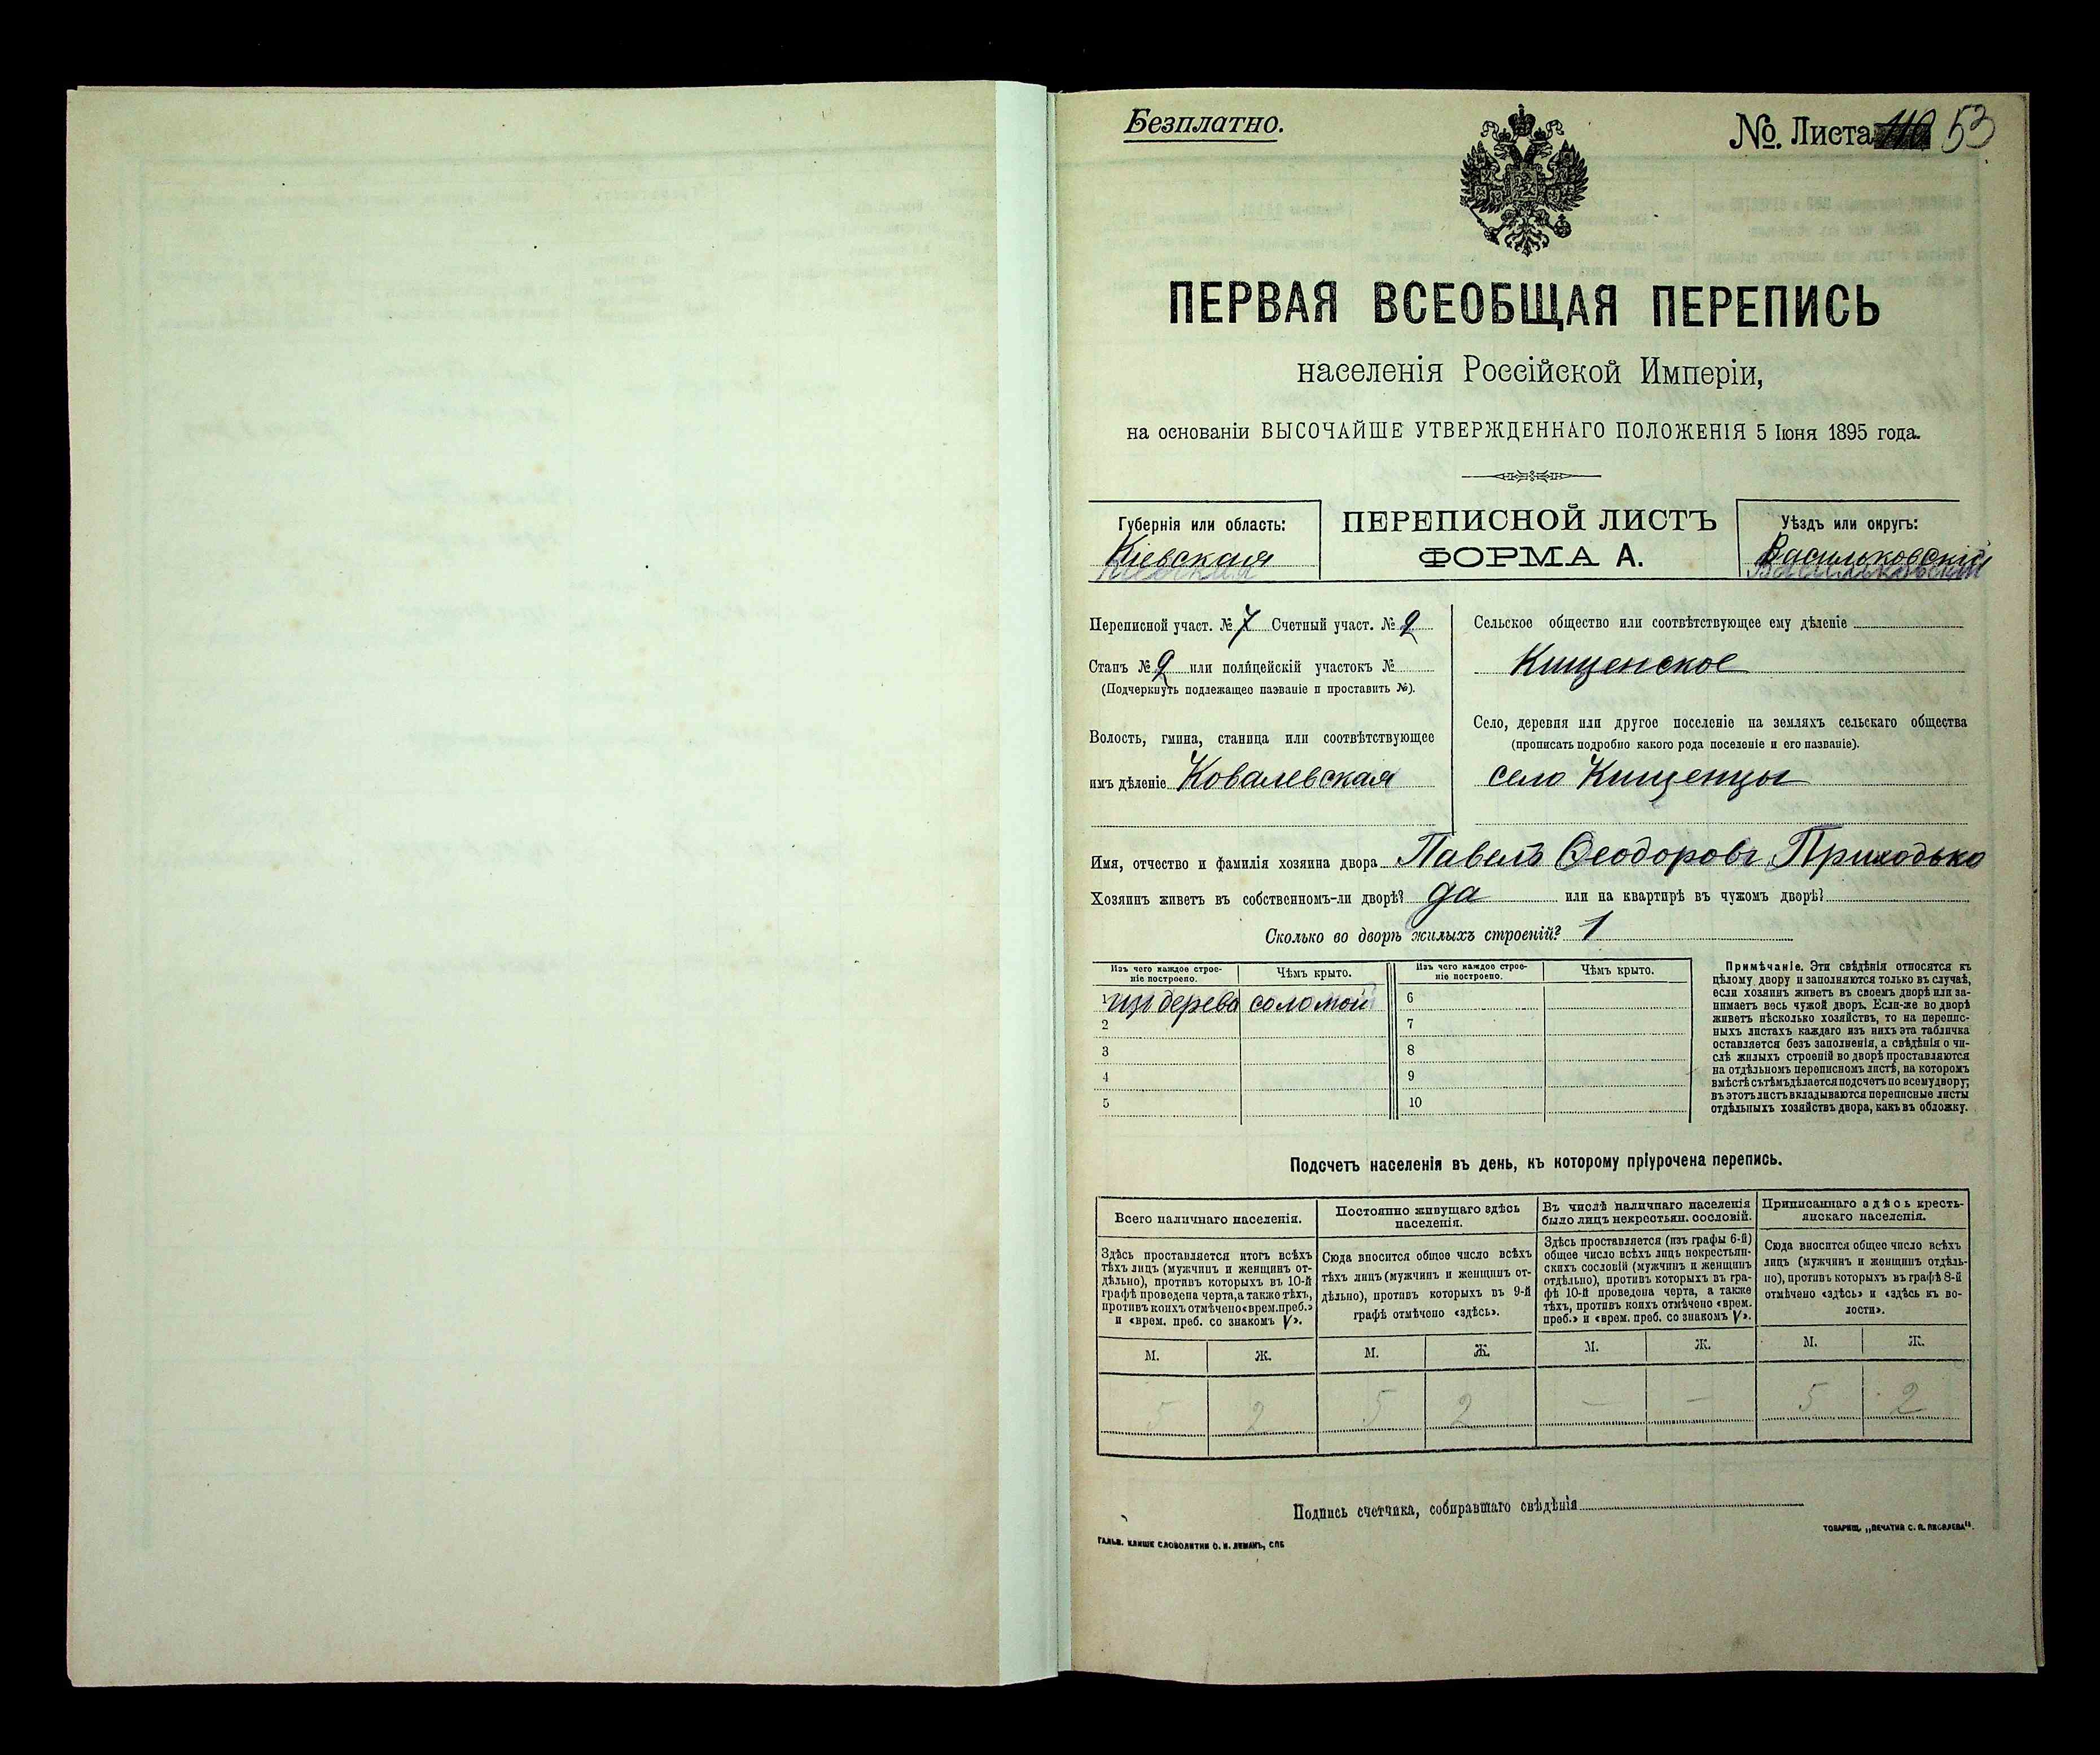 Безплатно.
№. Листа 53
ПЕРВАЯ ВСЕОБЩАЯ ПЕРЕПИСЬ
населенія Россійской Имперіи,
на основаніи ВЫСОЧАЙШЕ УТВЕРЖДЕННАГО ПОЛОЖЕНІЯ 5 Іюня 1895 года.
Губернія или область:
Кіевская
ПЕРЕПИСНОЙ ЛИСТЪ
ФОРМА А.
Уѣздъ или округъ:
Васильковскій
Переписной участ. № 7 Счетный участ. № 2
Станъ № 2 или полицейскій участокъ №
(Подчеркнуть подлежащее названіе и проставить №).
Волость, гмина, станица или соотвѣтствующее
имъ дѣленіе Ковалевская
Сельское общество или соотвѣтствующее ему дѣленіе
Кищенское
Село, деревня или другое поселеніе на земляхъ сельскаго общества
(прописать подробно какого рода поселеніе и его названіе).
село Кищенцы
Имя, отчество и фамилія хозяина двора Павелъ Ѳеодоровъ Приходько
Хозяинъ живетъ въ собственномъ-ли дворѣ? да или на квартирѣ въ чужомъ дворѣ?
Сколько во дворѣ жилыхъ строеній? 1
Изъ чего каждое строе-
ніе построено.
Чѣмъ крыто.
Изъ чего каждое строе-
ніе построено.
Чѣмъ крыто.
1 изъ дерева соломой 6
2 7
3 8
4 9
5 10
Примѣчаніе. Эти свѣдѣнія относятся къ
цѣлому двору и заполняются только въ случаѣ,
если хозяинъ живетъ въ своемъ дворѣ или за-
нимаетъ весь чужой дворъ. Если-же во дворѣ
живетъ нѣсколько хозяйствъ, то на перепис-
ныхъ листахъ каждаго изъ нихъ эта табличка
оставляется безъ заполненія, а свѣдѣнія о чи-
слѣ жилыхъ строеній во дворѣ проставляются
на отдѣльномъ переписномъ листѣ, на которомъ
вмѣстѣ съ тѣмъ дѣлается подсчетъ по всему двору;
въ этотъ листъ вкладываются переписные листы
отдѣльныхъ хозяйствъ двора, какъ въ обложку.
Подсчетъ населенія въ день, къ которому пріурочена перепись.
Всего наличнаго населенія.
Здѣсь проставляется итогъ всѣхъ
тѣхъ лицъ (мужчинъ и женщинъ от-
дѣльно), противъ которыхъ въ 10-й
графѣ проведена черта, а также тѣхъ,
противъ коихъ отмѣчено «врем. преб.»
и «врем. преб. со знакомъ V».
Постоянно живущаго здѣсь
населенія.
Сюда вносится общее число всѣхъ
тѣхъ лицъ (мужчинъ и женщинъ от-
дѣльно), противъ которыхъ въ 9-й
графѣ отмѣчено «здѣсь».
Въ числѣ наличнаго населенія
было лицъ некрестьян. сословій.
Здѣсь проставляется (изъ графы 6-й)
общее число всѣхъ лицъ некрестьян-
скихъ сословій (мужчинъ и женщинъ
отдѣльно), противъ которыхъ въ гра-
фѣ 10-й проведена черта, а также
тѣхъ, противъ коихъ отмѣчено «врем.
преб.» и «врем. преб. со знакомъ V».
Приписаннаго здѣсь кресть-
янскаго населенія.
Сюда вносится общее число всѣхъ
лицъ (мужчинъ и женщинъ отдѣль-
но), противъ которыхъ въ графѣ 8-й
отмѣчено «здѣсь» и «здѣсь къ во-
лости».
М. Ж. М. Ж. М. Ж. М. Ж.
5 2 5 2 — — 5 2
Подпись счетчика, собиравшаго свѣдѣнія
ГАЛЬВ. КЛИШЕ СЛОВОЛИТНИ О. И. ЛЕМАНЪ, СПБ
ТОВАРИЩ. „ПЕЧАТНЯ С. П. ЯКОВЛЕВА“.